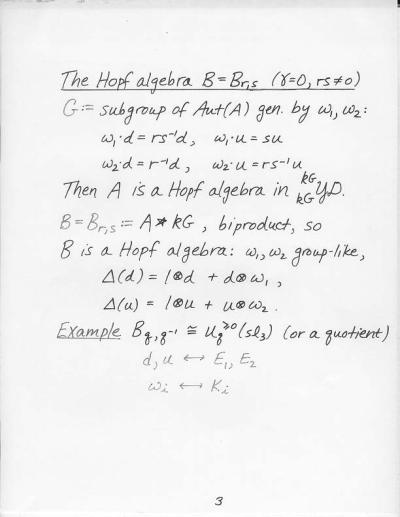 The Hopf algebra B=B_{r,s} (γ=0, rs≠0)
G:= subgroup of Aut(A) gen. by ω₁,ω₂:
ω₁·d = rs⁻¹d, ω₁·u = su
ω₂·d = r⁻¹d, ω₂·u = rs⁻¹u
Then A is a Hopf algebra in ^{kG}_{kG}YD.
B=B_{r,s} := A * kG, biproduct, so
B is a Hopf algebra: ω₁,ω₂ group-like,
Δ(d) = 1⊗d + d⊗ω₁,
Δ(u) = 1⊗u + u⊗ω₂.
Example B_{q,q⁻¹} ≅ u_q^{≥0}(sl₃) (or a quotient)
d,u ↔ E₁, E₂
ωᵢ ↔ Kᵢ
3